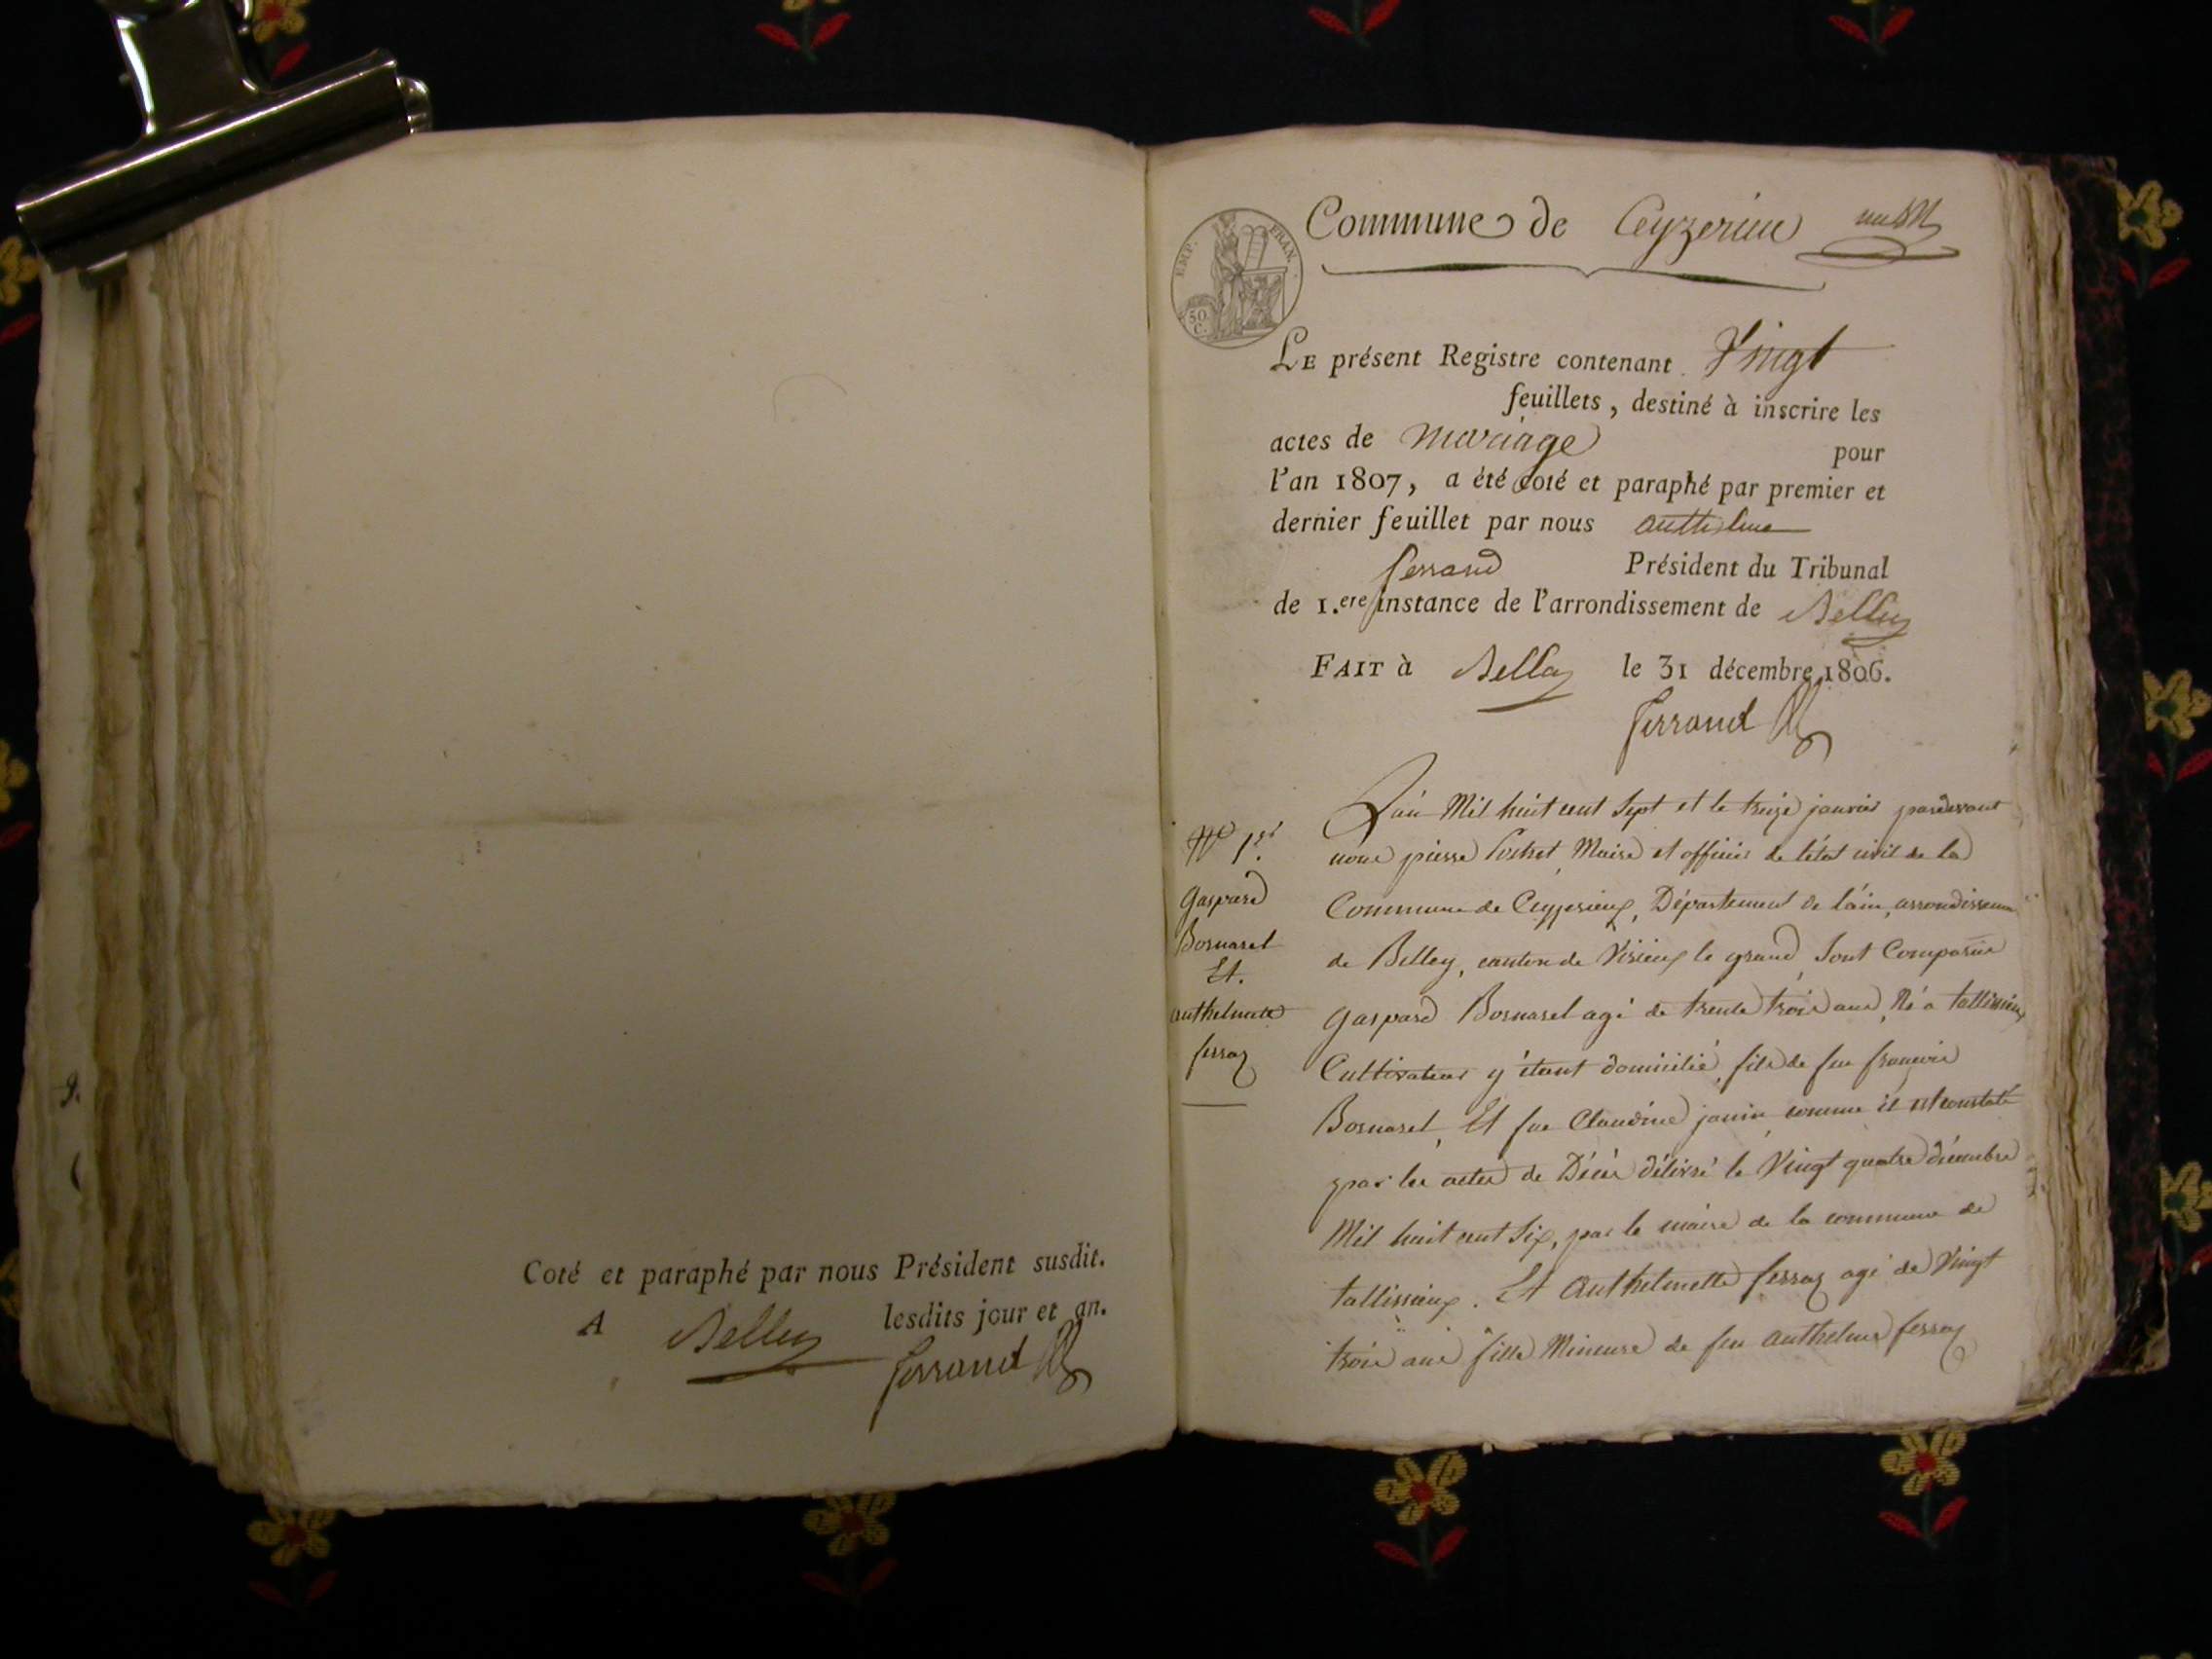 Coté et paraphé par nous Président susdit.
A Belley lesdits jour et an.
ferrand
Commune de Ceyzerieu
EMP. FRAN.
50 C.
LE présent Registre contenant Vingt
feuillets, destiné à inscrire les
actes de mariage pour
l'an 1807, a été coté et paraphé par premier et
dernier feuillet par nous anthelme
ferrand Président du Tribunal
de 1.ere instance de l'arrondissement de Belley
FAIT à Belley le 31 décembre 1806.
ferrand
No 1er
gaspard
Bornarel
Et.
anthelmette
ferraz
L'an Mil huit cent Sept et le treize janvier pardevant
nous pierre Maire et officier de l'état civil de la
Commune de Ceyzerieux, Département de l'ain, arrondissement
de Belley, canton de Virieux le grand, Sont Comparus
gaspard Bornarel agé de trente trois ans, Né a tallissieux
Cultivateur y étant domicilié, fils de feu françois
Bornarel, Et feue Claudine janin comme il est constaté
par les actes de Décès délivré le Vingt quatre décembre
Mil huit cent Six, par le maire de la commune de
tallissieux. Et Anthelmette ferraz agé de Vingt
trois ans fille Mineure de feu anthelme ferraz